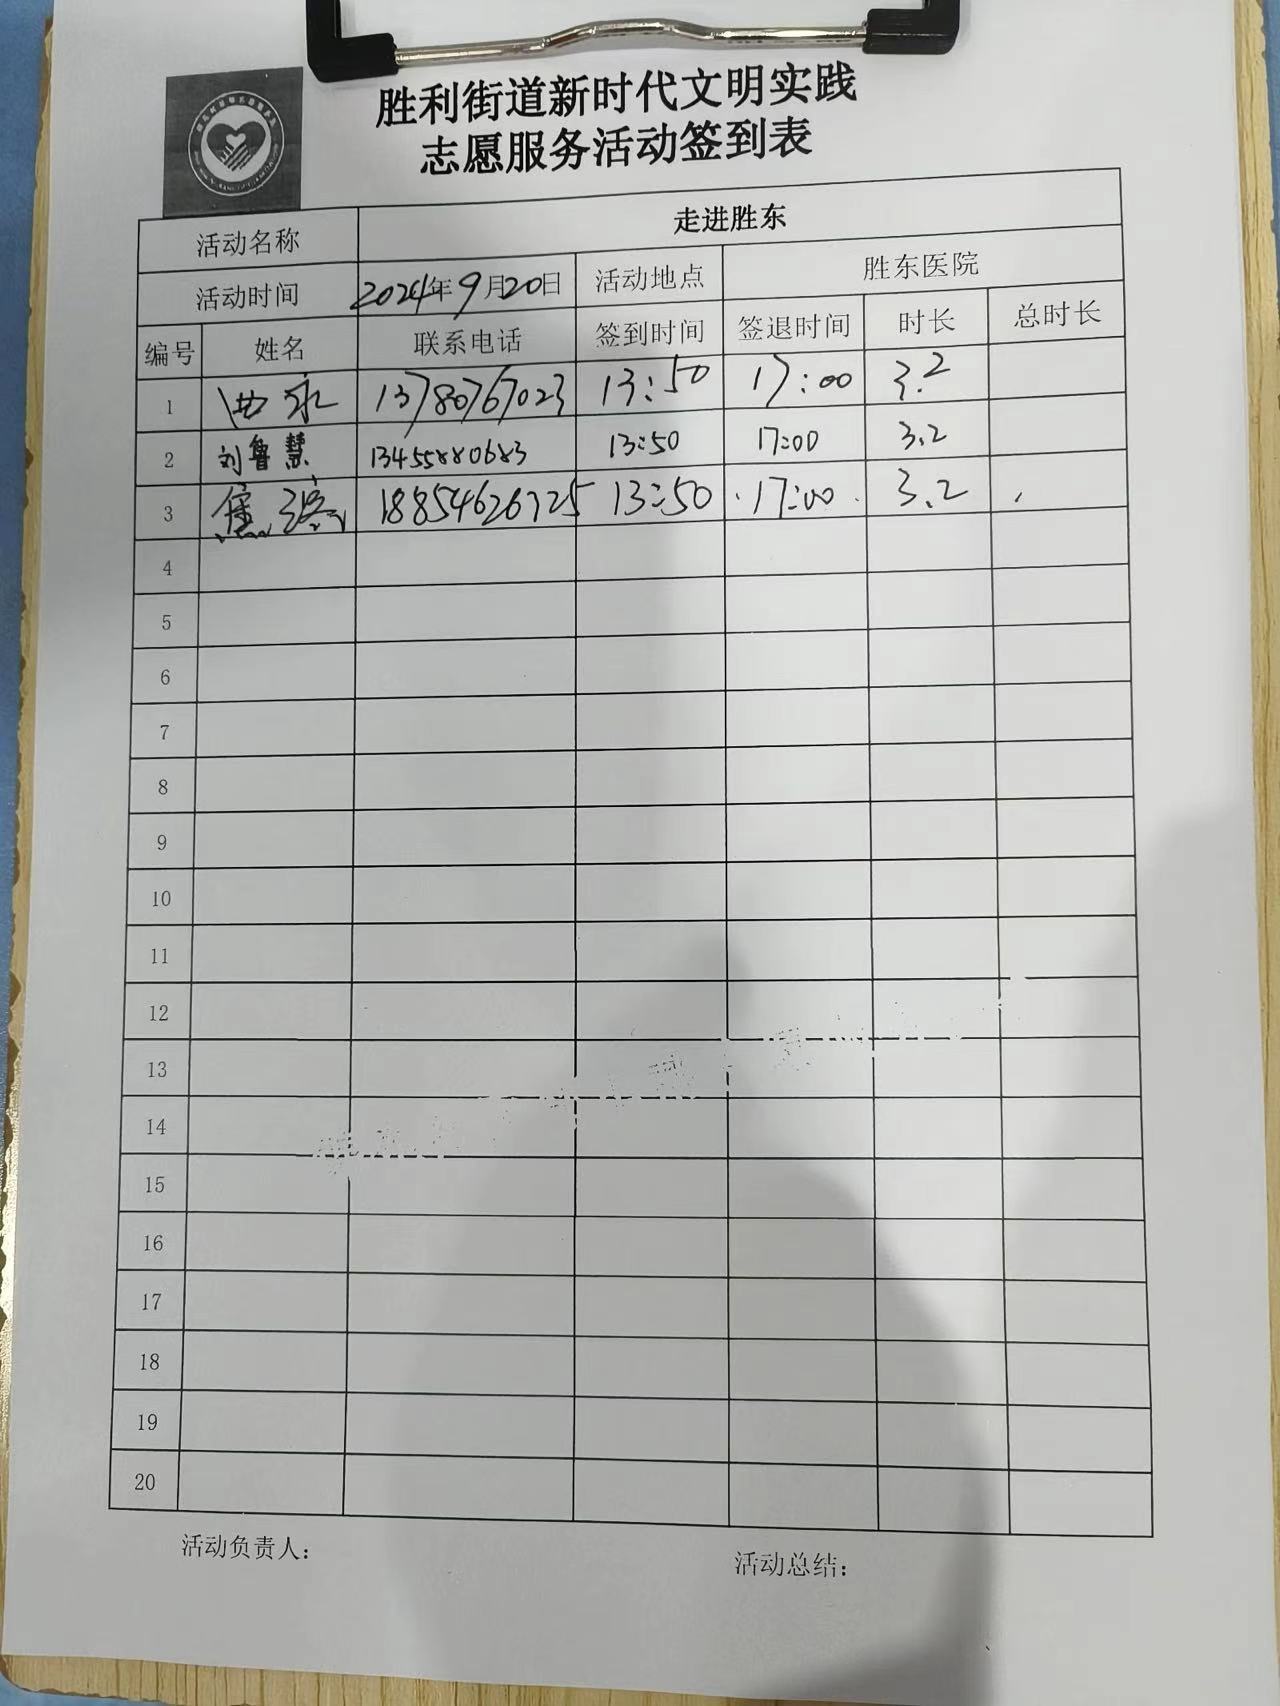 胜利街道新时代文明实践
志愿服务活动签到表
活动名称 走进胜东
活动时间 2024年9月20日 活动地点 胜东医院
编号 姓名 联系电话 签到时间 签退时间 时长 总时长
1 13780767023 13:50 17:00 3.2
2 刘鲁慧 13455880683 13:50 17:00 3.2
3 焦 18854626725 13:50 17:00 3.2
4
5
6
7
8
9
10
11
12
13
14
15
16
17
18
19
20
活动负责人： 活动总结：